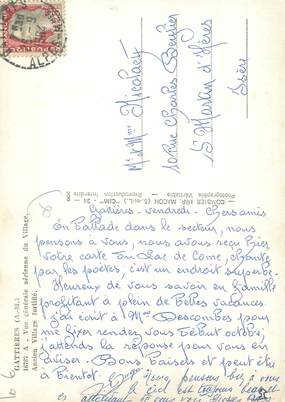 M. et Mme Nicolaci
10 Rue Charles Beudier
St Martin d'Hères
Isère
Gattières - vendredi - Chers amis
En Ballade dans le secteur, nous
pensons à vous, nous avons reçu hier
votre carte du Lac de Come, chanté
par les poètes, c'est un endroit superbe.
Heureux de vous savoir en famille
profitant à plein de Belles vacances
J'ai écrit à Mme Descombes pour
me fixer rendez vous Début octobre,
j'attends la réponse pour vous en
aviser. Bons Baisers et peut être
à Bientôt.
pensons bien à vous
le ciel est toujours beau et
GATTIERES (A.-M.)
1677 A - Vue générale aérienne du Village.
Ancien Village fortifié.
COMBIER IMP. MACON (S.-et-L.) "CIM"
Photographie Véritable - Reproduction Interdite